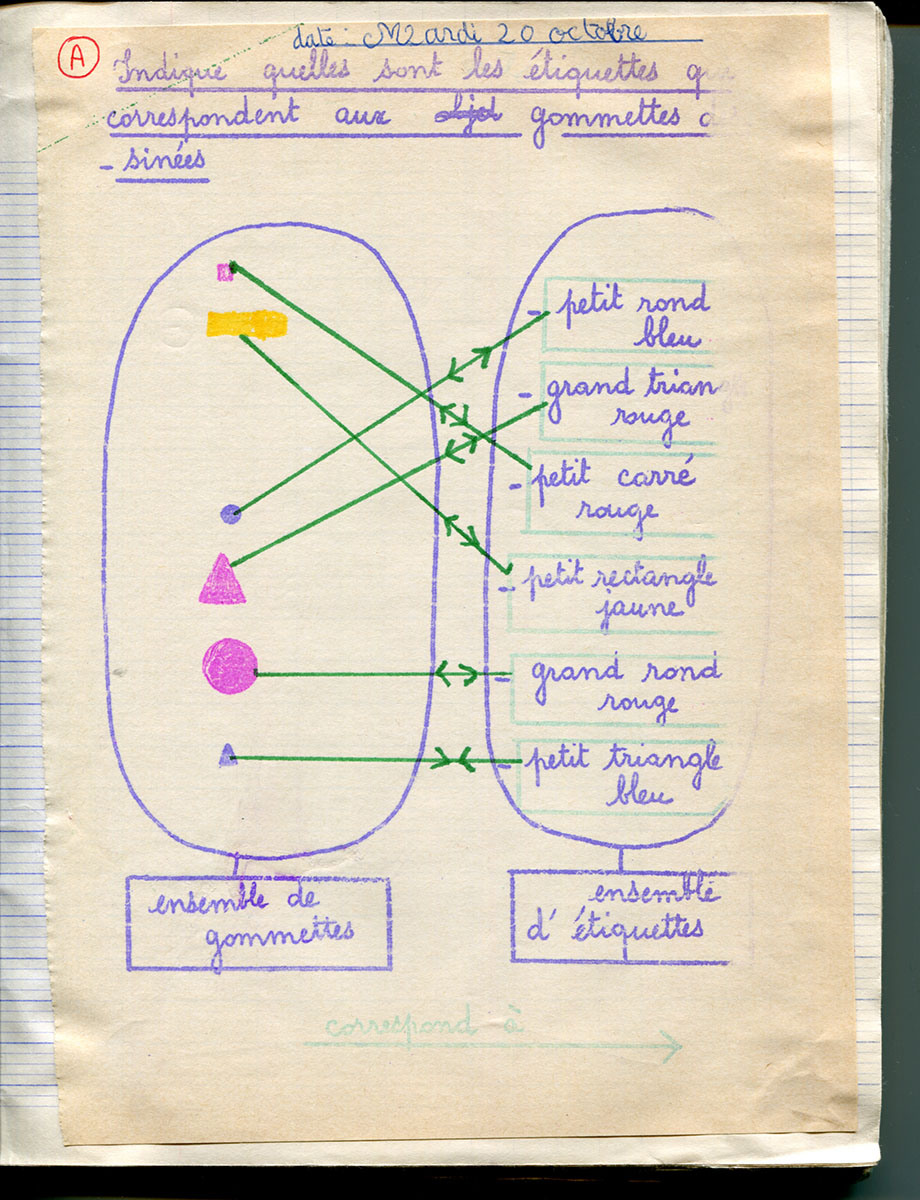 A
date : M2 ardi 20 octobre
Indique quelles sont les étiquettes qu
correspondent aux gommettes d
- sinées
- petit rond
bleu
- grand trian
rouge
- petit carré
rouge
- petit rectangle
jaune
- grand rond
rouge
- petit triangle
bleu
ensemble de
gommettes
ensemble
d'étiquettes
correspond à